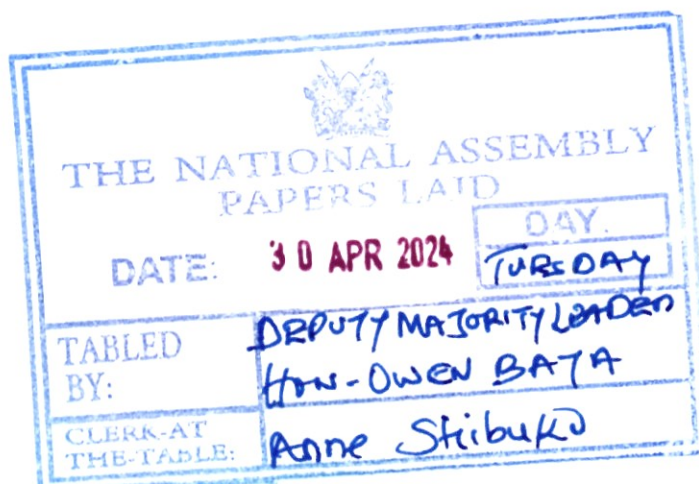 THE NATIONAL ASSEMBLY
PAPERS LAID
DAY.
DATE: 30 APR 2024 TUESDAY
TABLED BY: DEPUTY MAJORITY LEADER
HON-OWEN BAYA
CLERK-AT THE-TABLE: Anne Shibuko